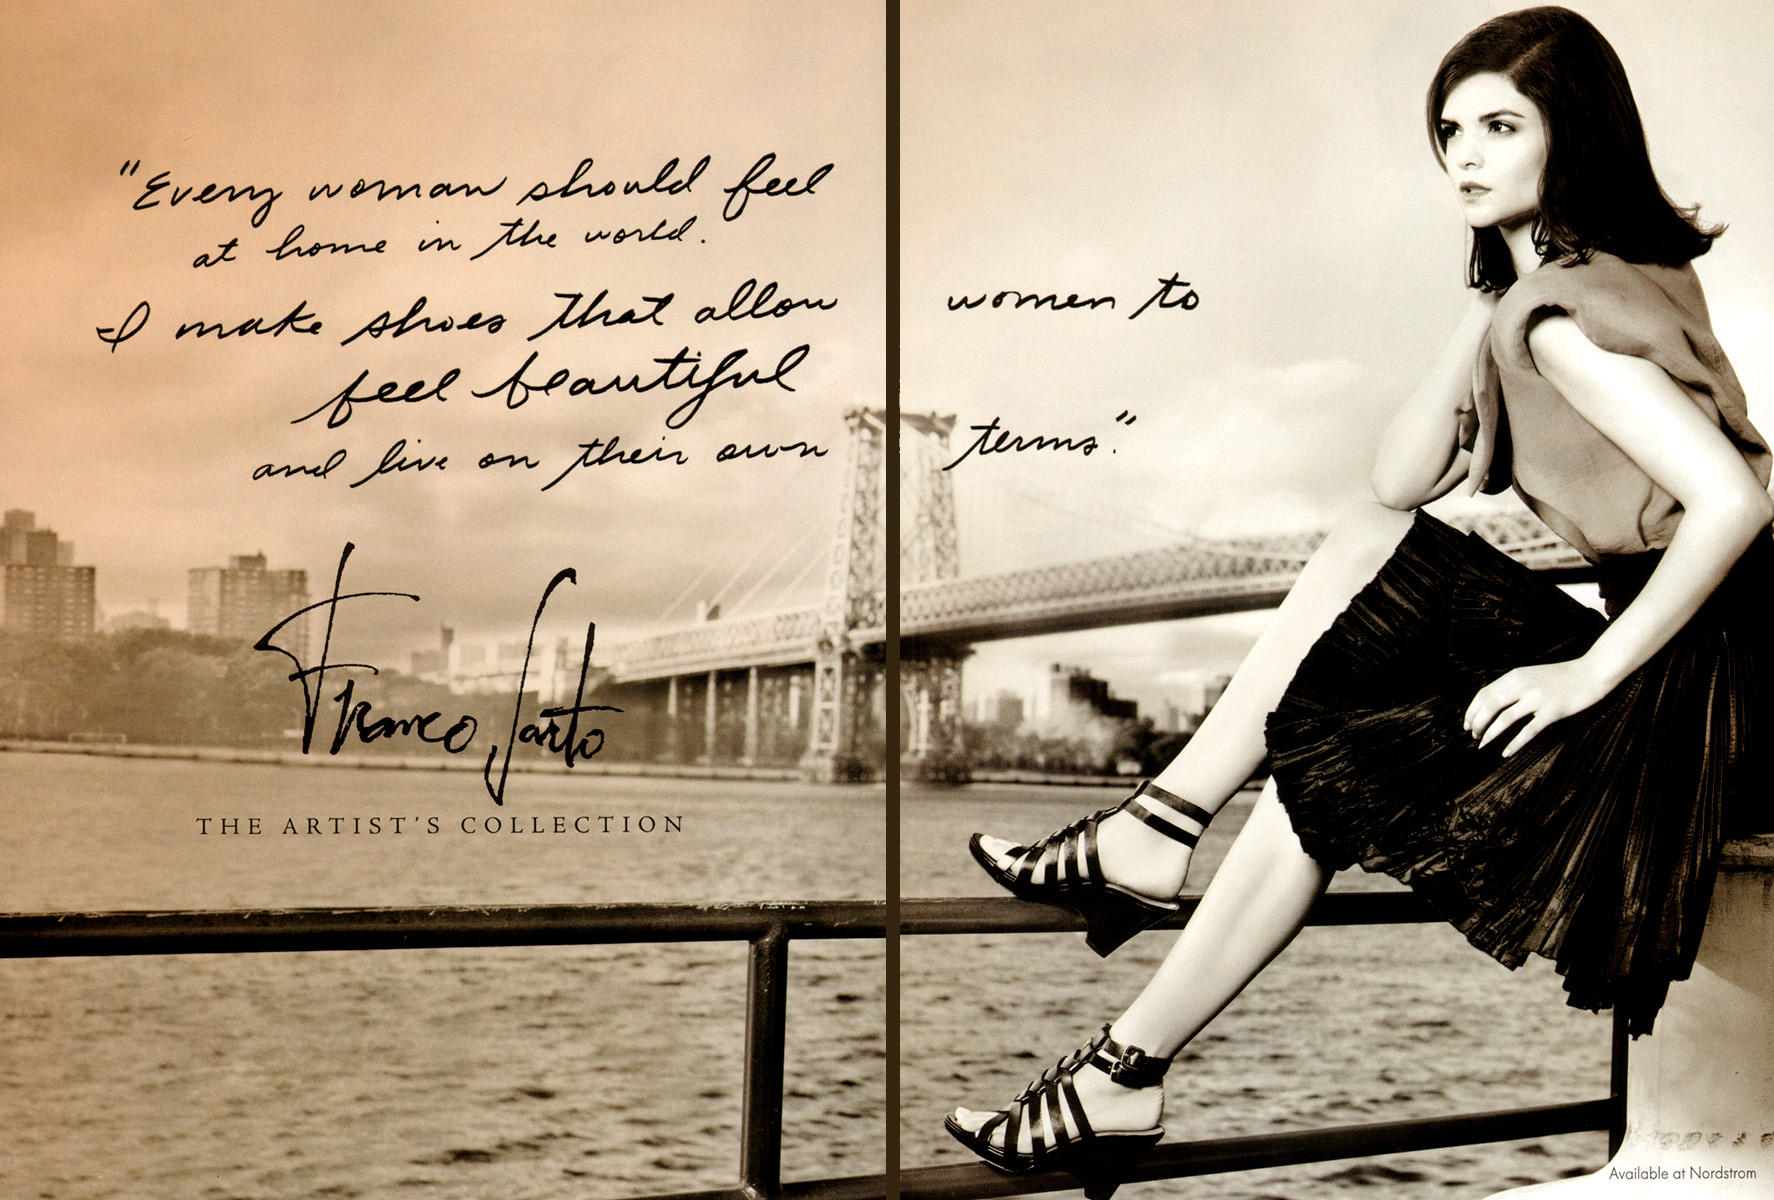 "Every woman should feel
at home in the world.
I make shoes that allow women to
feel beautiful
and live on their own terms."
Franco Sarto
THE ARTIST'S COLLECTION
Available at Nordstrom